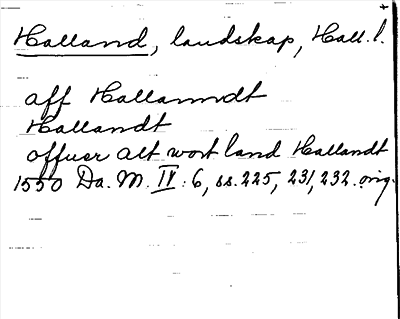 Halland, landskap, Hall. l.
aff Hallanndt
Hallandt
offuer alt wort land Hallandt
1550 Da. M. IV: 6, ss. 225, 231, 232. orig.